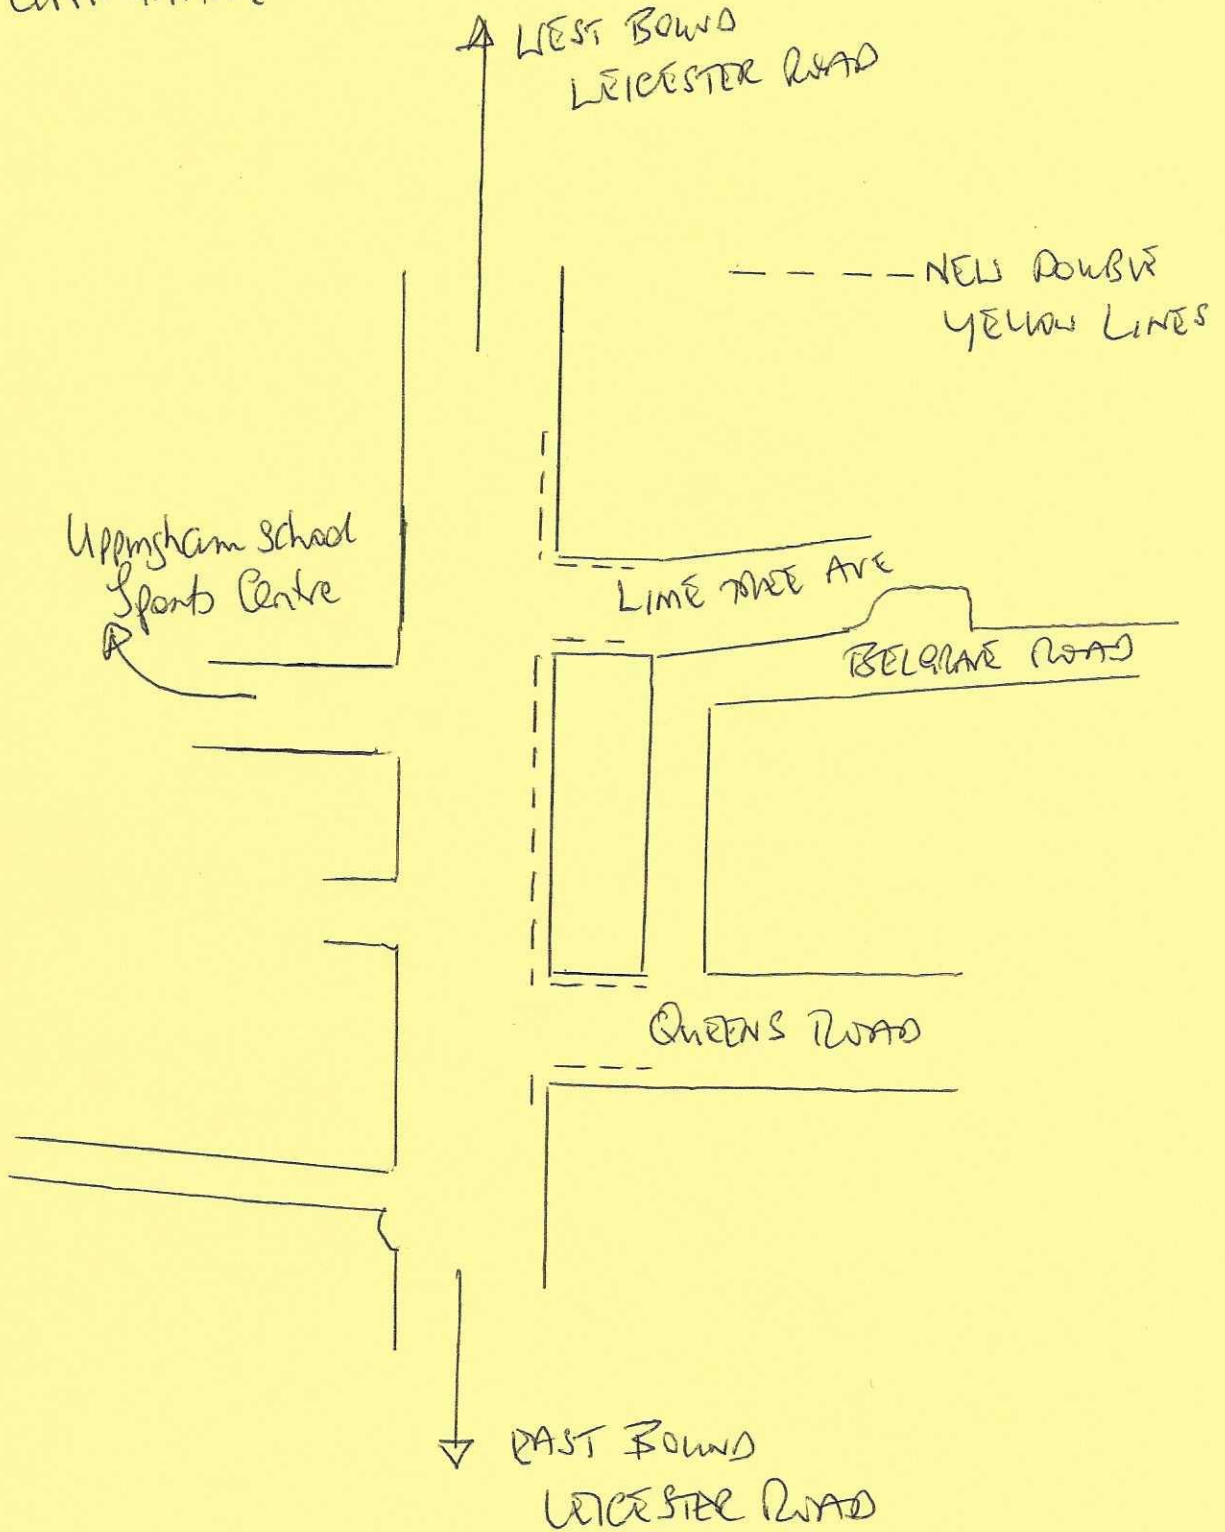 WEST BOUND
LEICESTER ROAD
NEW DOUBLE
YELLOW LINES
Uppingham School
Sports Centre
LIME TREE AVE
BELGRAVE ROAD
QUEENS ROAD
EAST BOUND
LEICESTER ROAD